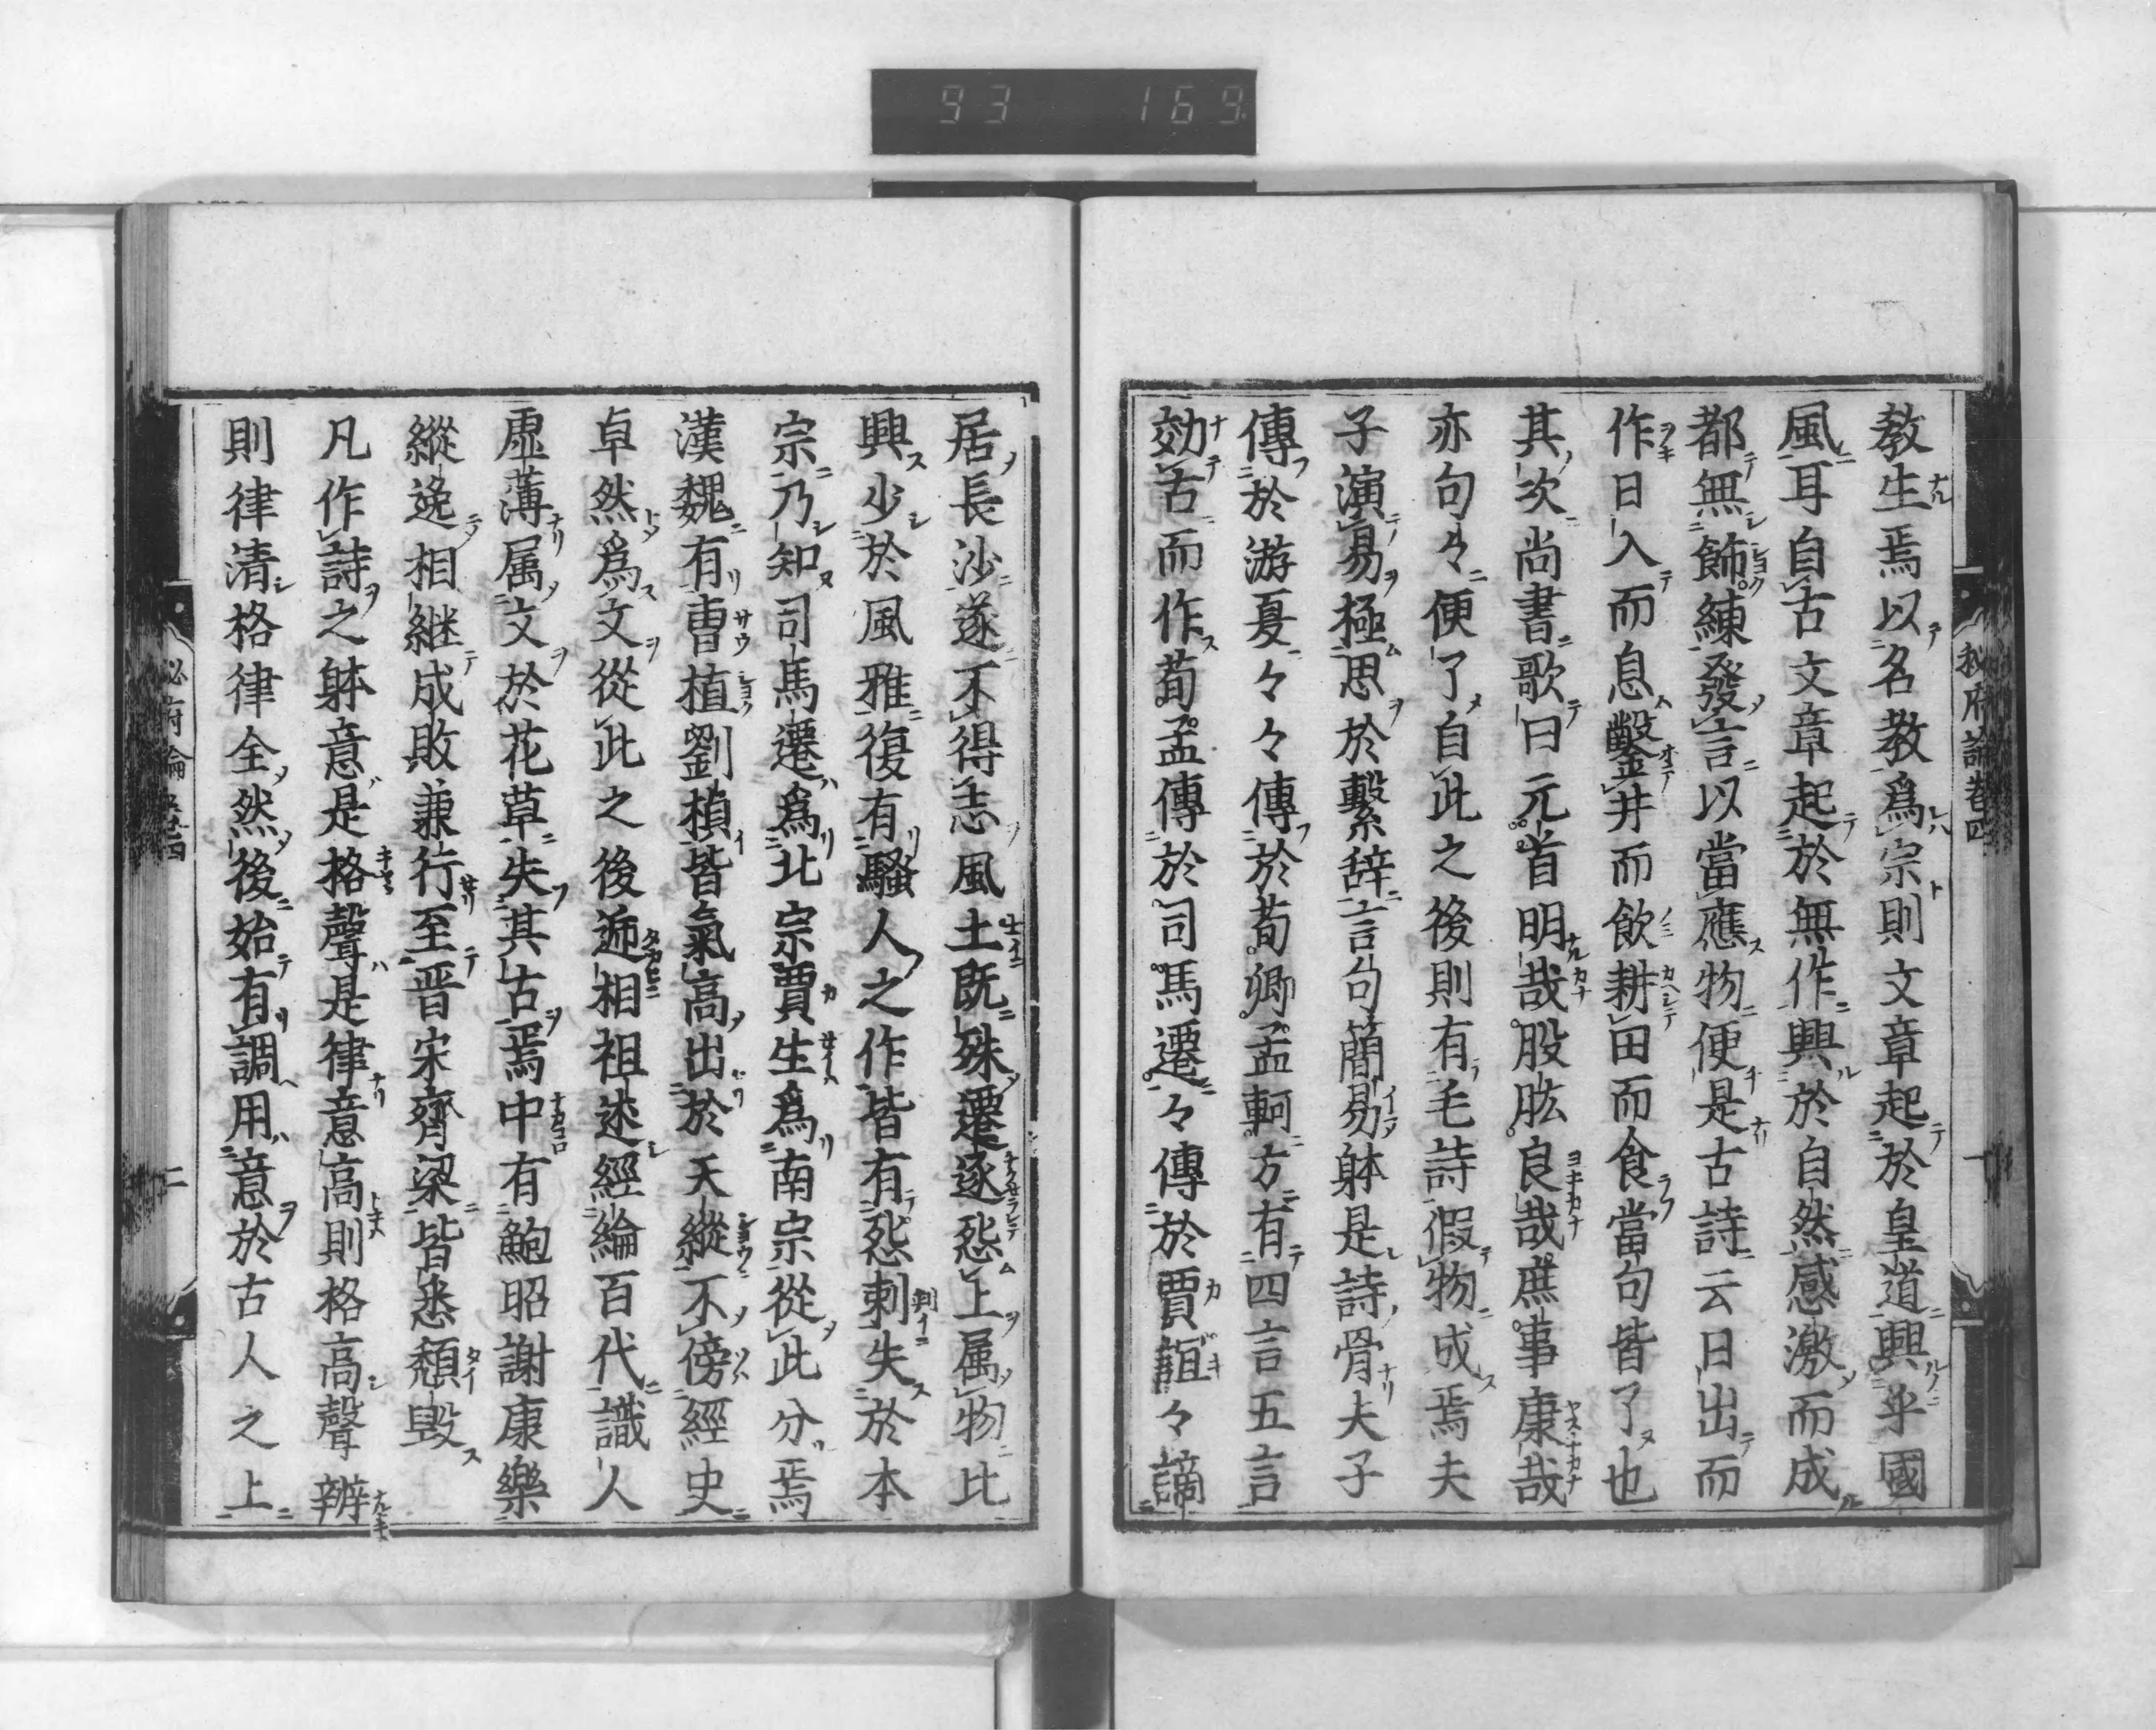 93 169
教生焉以名教爲宗則文章起於皇道興乎國
風耳自古文章起於無作興於自然感激而成
都無飾練發言以當應物便是古詩云日出而
作日入而息鑿井而飲耕田而食當句皆了也
其次尚書歌曰元首明哉股肱良哉庶事康哉
亦句々便了自此之後則有毛詩假物成焉夫
子演易極思於繫辞言句簡易躰是詩骨夫子
傳於游夏々々傳於荀卿孟軻方有四言五言
効古而作荀孟傳於司馬遷々傳於賈誼々謫
居長沙遂不得志風土既殊遷逐怨上属物比
興少於風雅復有騷人之作皆有怨刺失於本
宗乃知司馬遷爲北宗賈生爲南宗從此分焉
漢魏有曹植劉楨皆氣高出於天縱不傍經史
卓然爲文從此之後遞相祖述經綸百代識人
虛薄属文於花草失其古焉中有鮑昭謝康樂
縱逸相継成敗兼行至晋宋齊梁皆悉頽毀
凡作詩之躰意是格聲是律意高則格高聲辨
則律清格律全然後始有調用意於古人之上